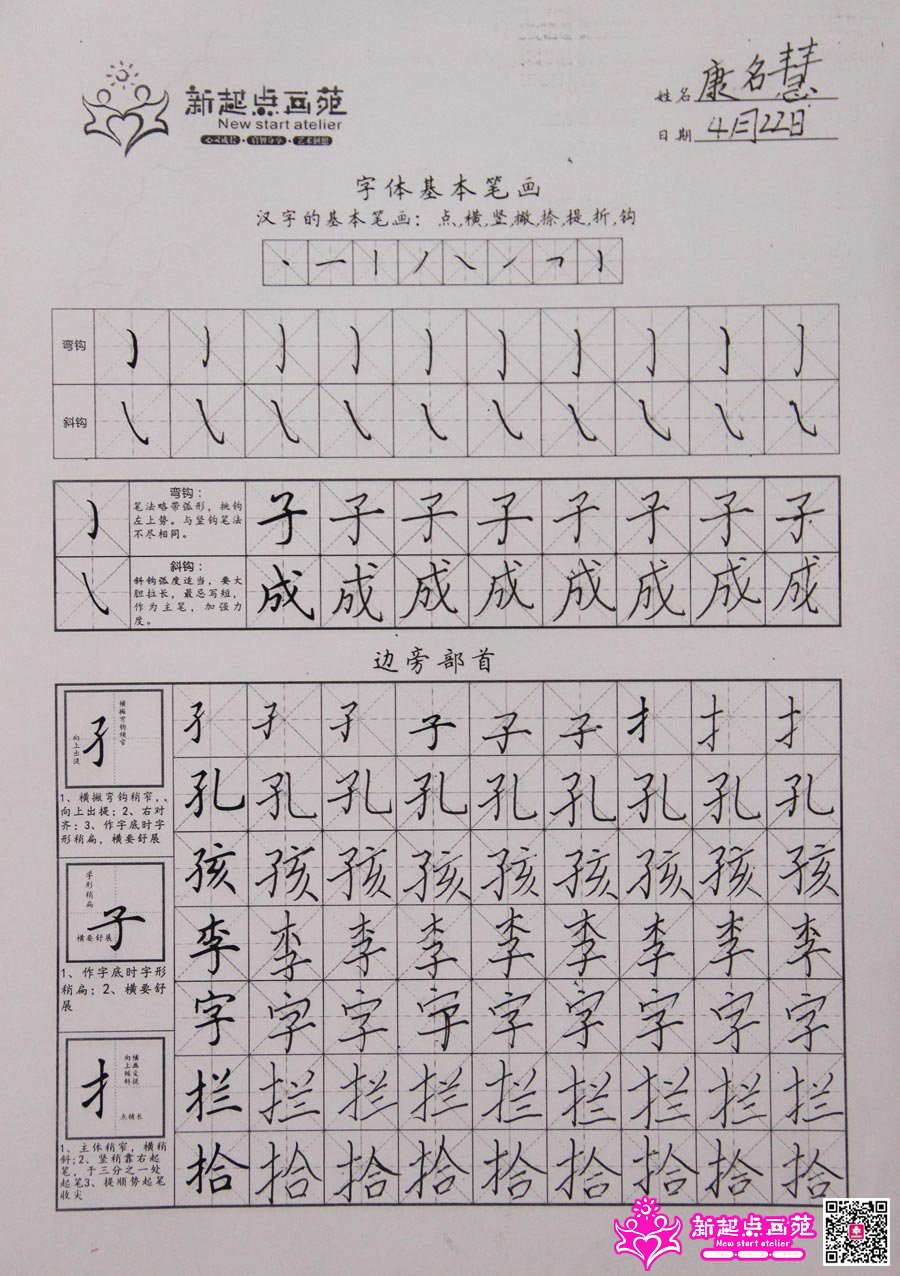 新起点画苑
New start atelier
姓名 康名慧
日期 4月22日
字体基本笔画
汉字的基本笔画：点,横,竖,撇,捺,提,折,钩
弯钩
斜钩
弯钩：
笔法略带弧形，挑钩
左上势。与竖钩笔法
不尽相同。
子 子 子 子 子 子 子 子
斜钩：
斜钩弧度适当，要大
胆拉长，最忌写短，
作为主笔，加强力
度。
成 成 成 成 成 成 成 成
边旁部首
横撇弯钩稍窄
向上出提
1、横撇弯钩稍窄，、
向上出提；2、右对
齐；3、作字底时字
形稍扁，横要舒展
孑 孑 孑 子 子 子 扌 扌 扌
孔 孔 孔 孔 孔 孔 孔 孔 孔
孩 孩 孩 孩 孩 孩 孩 孩 孩
字形稍扁
子
横要舒展
1、作字底时字形
稍扁；2、横要舒
展
李 李 李 李 李 李 李 李 李
字 字 字 字 字 字 字 字 字
扌
点稍长
1、主体稍窄，横稍
斜;2、竖稍靠右起
笔，于三分之一处
起笔3、提顺势起笔
收尖
拦 拦 拦 拦 拦 拦 拦 拦 拦
拾 拾 拾 拾 拾 拾 拾 拾 拾
新起点画苑
New start atelier